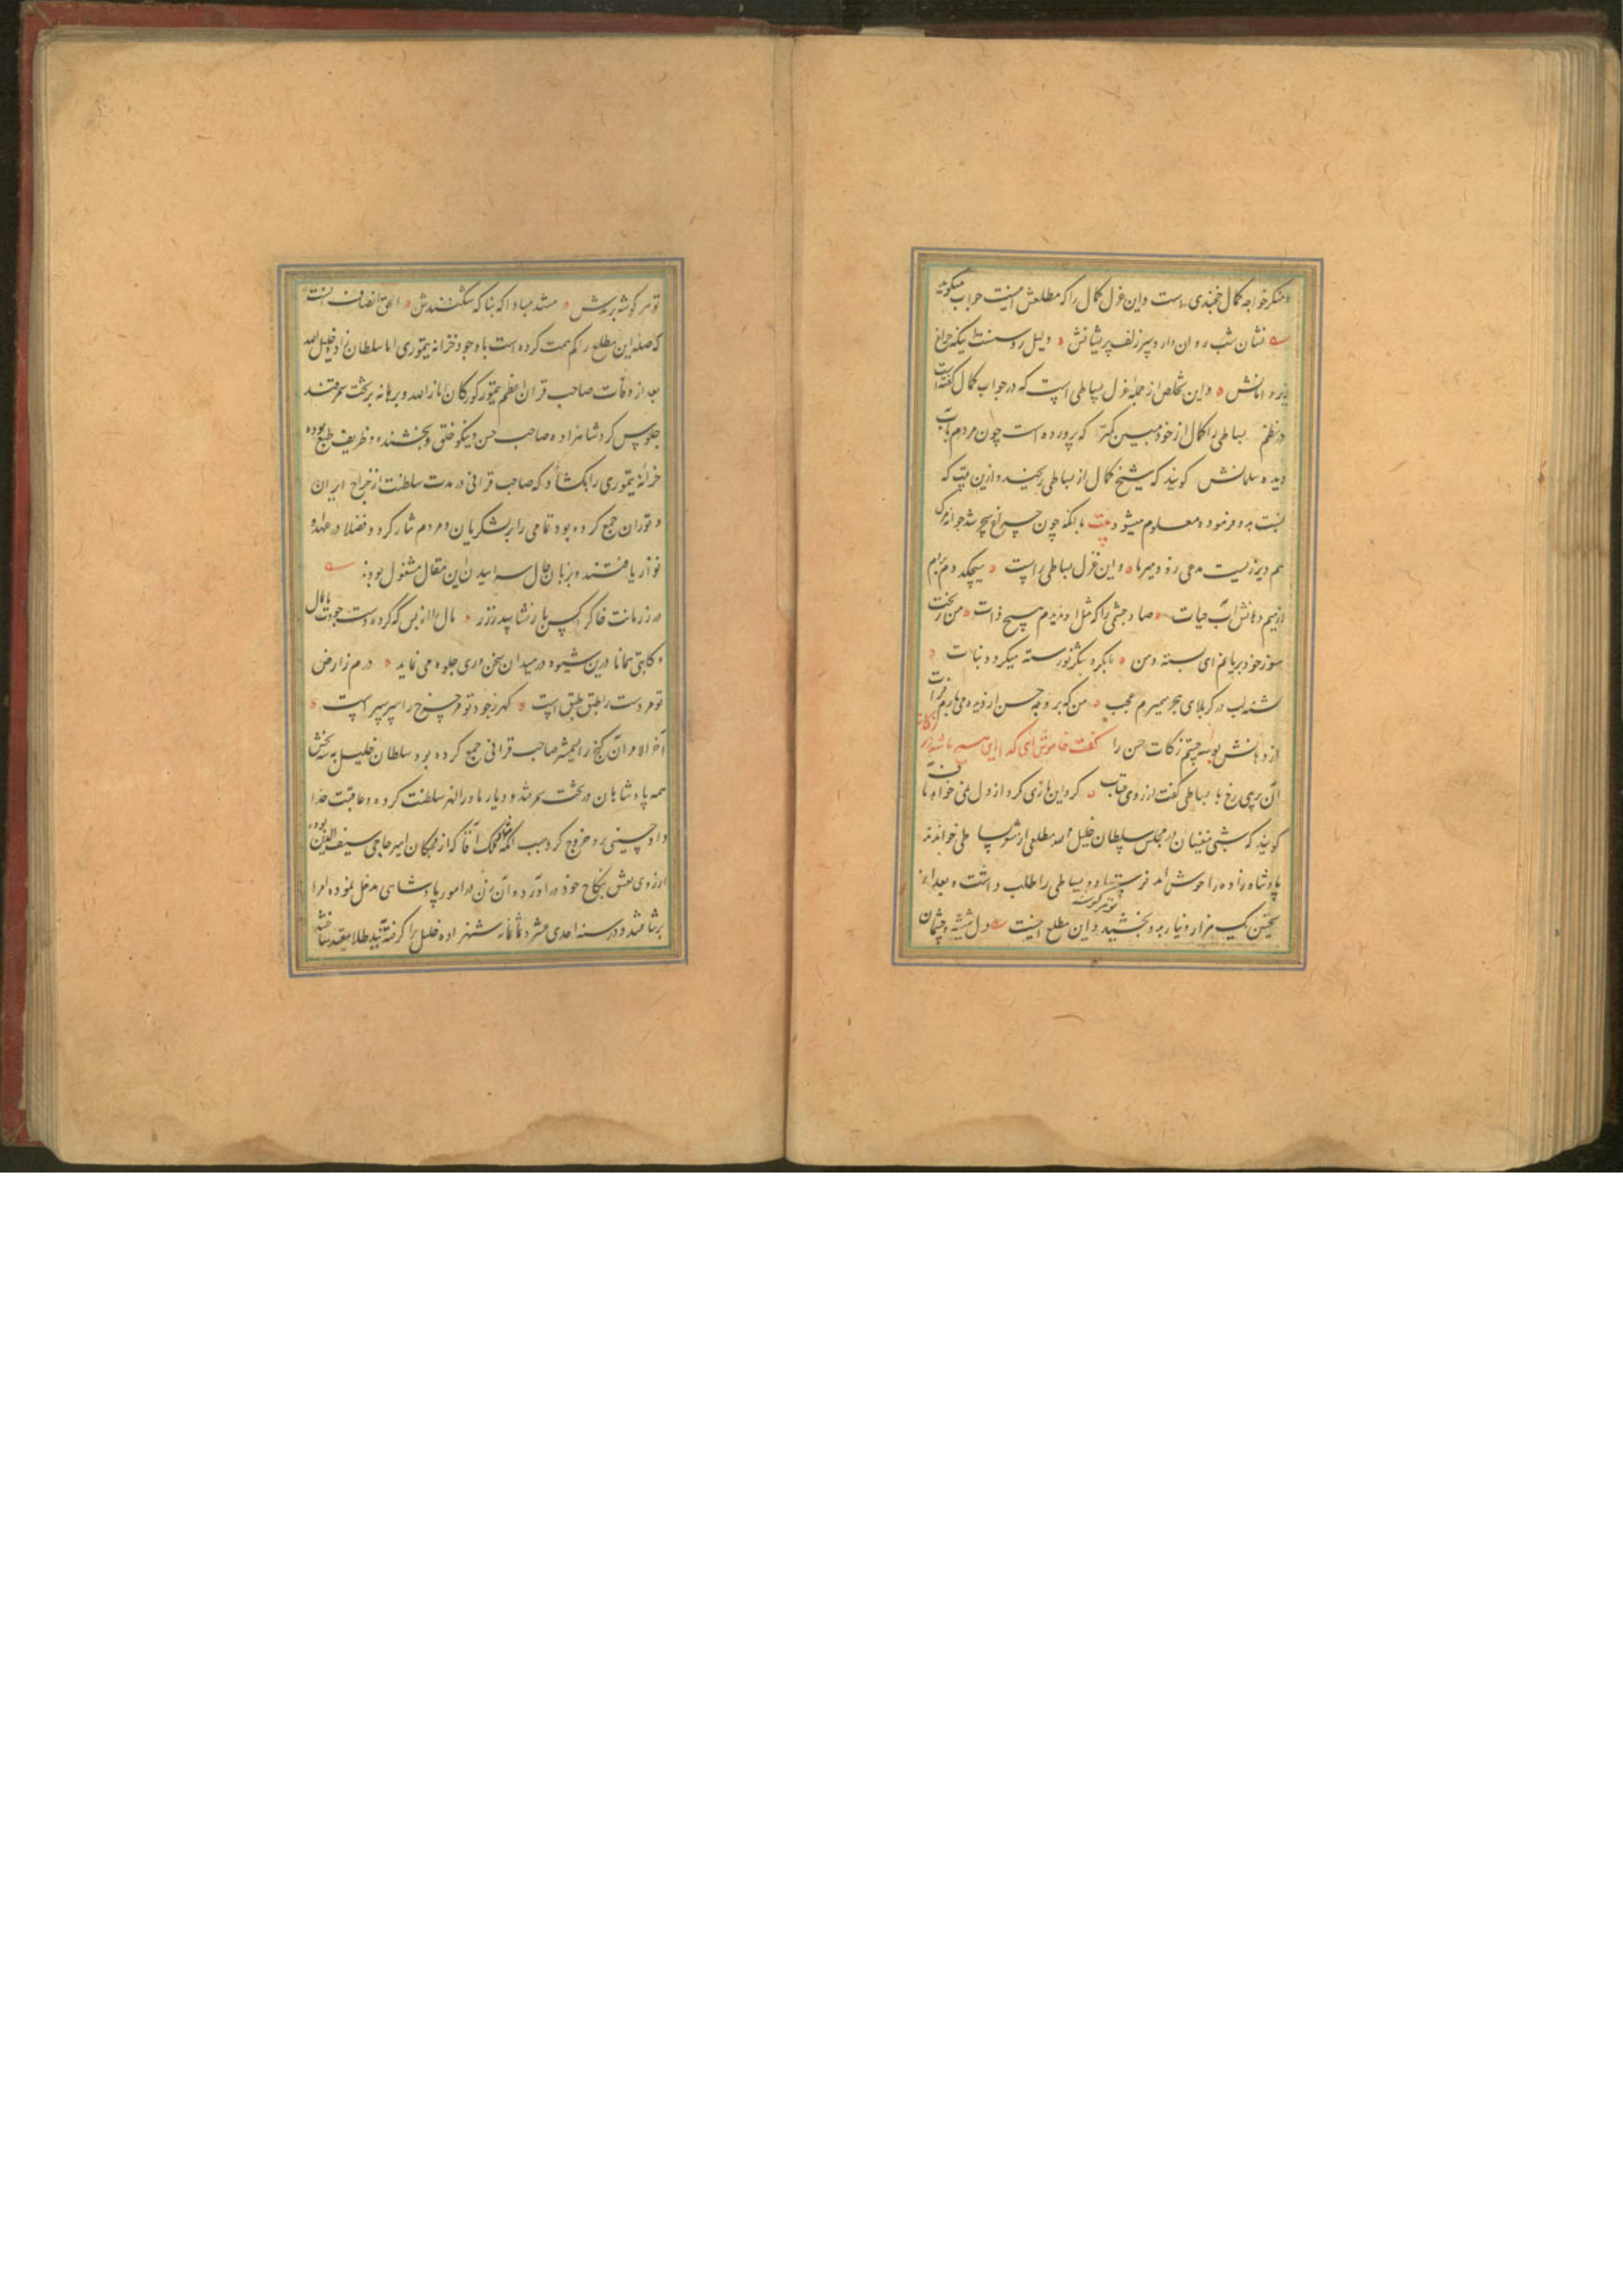 و منکر خواجه کمال خجندی است و این غزل کمال را که مطلعش اینست جواب میگوید
نشان شب روان دارد سر زلف پریشانش دلیل روشنست اینک چراغ
زیر دامانش و این تخلص از جمله غزل بساطی است که در جواب کمال گفته است
در نظم بساطی را کمال از خود مبین کمتر که پرورده است چون مردم بآب
دیده سلمانش گویند که شیخ کمال از بساطی رنجیده و ازین بیت که
نسبت بدو فرموده معلوم میشود بیت با آنکه چون چراغ سحر شد جوانمرگ
هم دیر زیست مدعی زود میر ما و این غزل بساطی راست میچکد دم بدم
از میم دهانش آب حیات صاد چشمی را که مثل او ندیدم هیچ ذات من ریخت
سوز خود بریانم ای پسته دمن با بکرد شکر نورسته میکرد و نبات
تشنه لب در کربلای هجر میمیرم عجب من که بر وجه حسن از دیده میبارم فرات
از دهانش بوسه جستم زکات حسن را گفت خاموش ای گدا
آن پری رخ با بساطی گفت از روی عتاب کرد این بازی کرد از دل نمی خواهد
گویند که شبی مغنیان در مجلس سلطان خلیل الله مطلعی از شعر بساطی خواندند
پادشاه زاده را خوش آمد فرستاد و بساطی را طلب داشت و بعد از
تحسین یک هزار دینار بدو بخشید و این مطلع اینست دل شیشه و چشمان تو هر گوشه
تو هر گوشه برندش مستند مبادا که بناگه شکنندش الحق انصاف آنست
که صله این مطلع را کم همت کرده است با وجود خزانه تیموری اما سلطان زاده خلیل الله
بعد از وفات صاحب قران اعظم تیمور کورکان انار الله برهانه بر تخت سمرقند
جلوس کرد شاهزاده صاحب حسن و نیکو خلق و بخشنده و ظریف طبع بوده
خزانه تیموری را بگشاد که صاحب قرانی در مدت سلطنت از خراج ایران
و توران جمع کرده بود تمامی را بر لشکریان و مردم نثار کرد و فضلا در عهد او
نوازش یافتند و بزبان حال سراییدن این مقال مشغول بودند
در زمانت خاکرا کس باز نشناسید ز زر مال را از بس که کرد دست جودت پایمال
و کاتبی همانا درین شیوه در میدان سخن وری جلوه می نماید درم ز ارض
تو هر دست را طبق طبق است گهر ز جود تو هر چرخ را سپر سپر است
آخر الامر آن گنج را که صاحب قرانی جمع کرده بود سلطان خلیل به بخشش
همه پادشاهان در تخت سمرقند و دیار ماورالنهر سلطنت کرده و عاقبت خداداد
حسینی برو خروج کرد سبب آنکه شادملک آقا که از قمکان امیر حاجی سیف الدین بوده
از روی عشق بنکاح خود در آورد و آن زن در امور پادشاهی مدخل نموده امرا
برنتافتند و در سنه احدی عشر و ثمانمایه شهزاده خلیل را گرفته بند طلا مقید ساختند